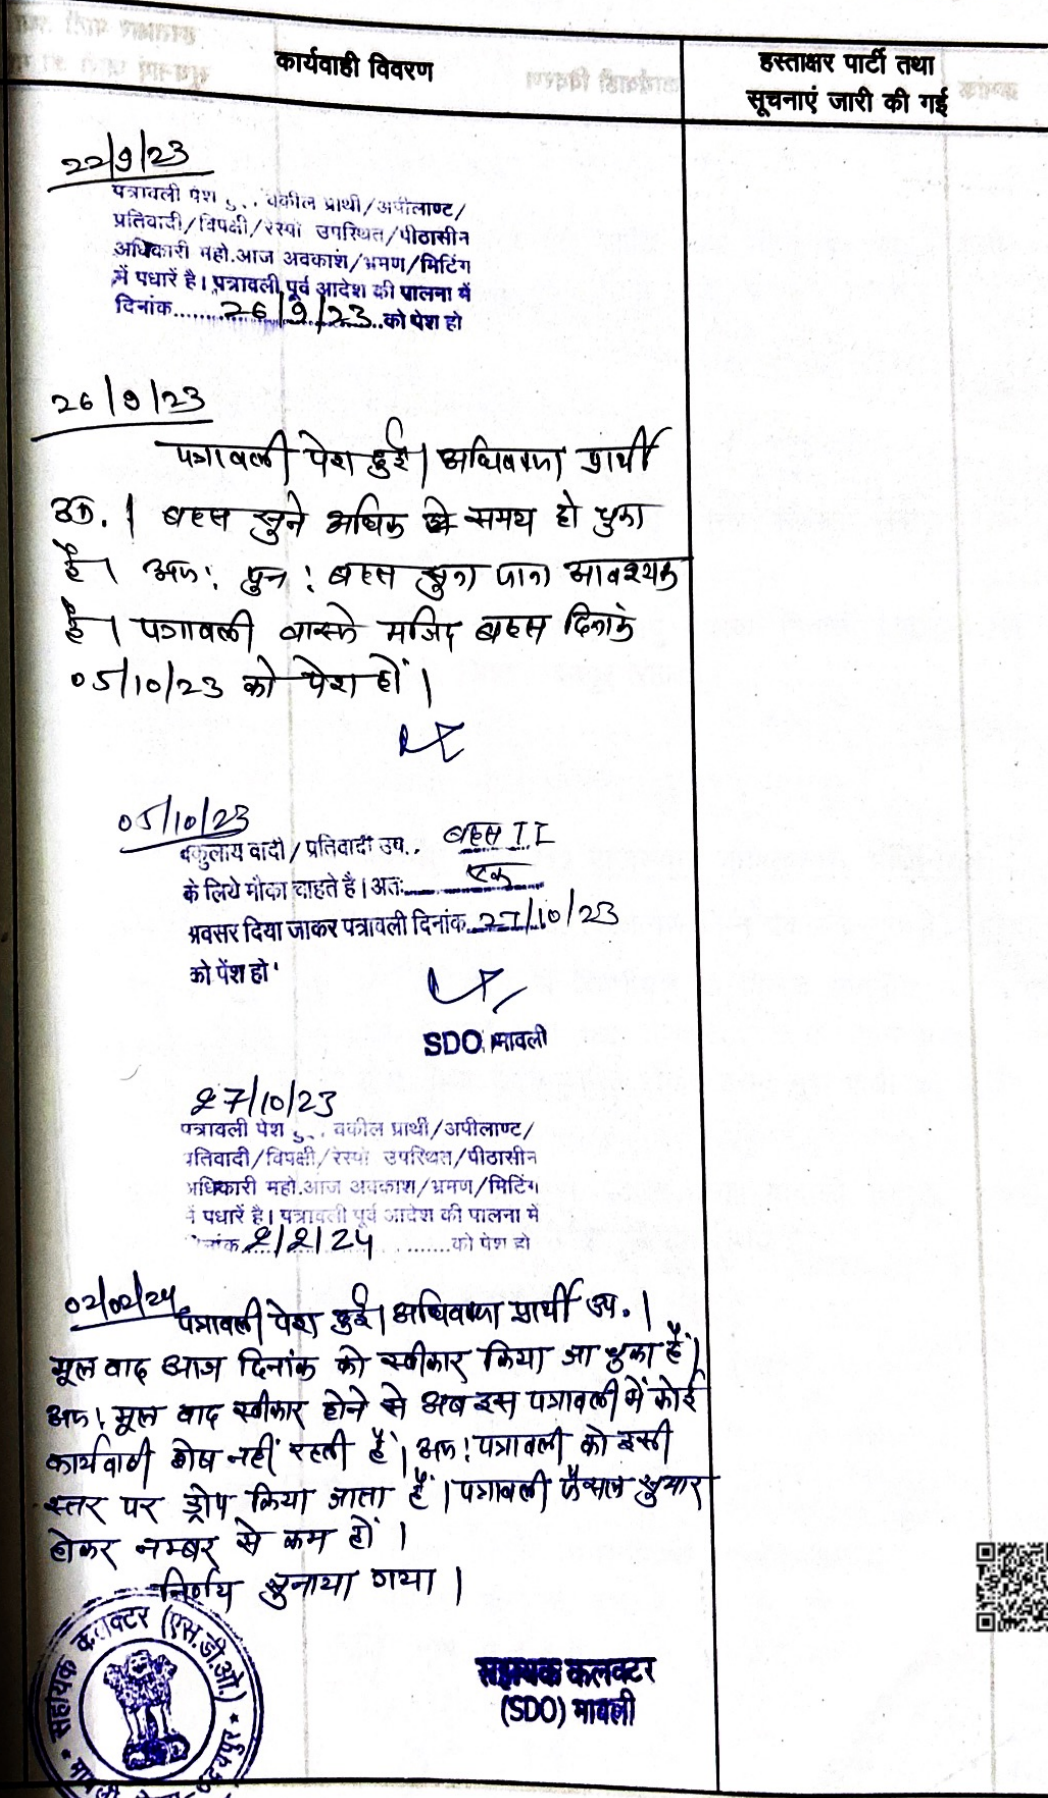 कार्यवाही विवरण
हस्ताक्षर पार्टी तथा
सूचनाएं जारी की गई
22/9/23
पत्रावली पेश हु.. वकील प्रार्थी/अपीलाण्ट/
प्रतिवादी/विपक्षी/रेस्पो उपस्थित/पीठासीन
अधिकारी महो.आज अवकाश/भ्रमण/मिटिंग
में पधारें है। पत्रावली पूर्व आदेश की पालना में
दिनांक........26/9/23..को पेश हो
26/9/23
पत्रावली पेश हुई। अधिवक्ता प्रार्थी
उप. । बहस सुने अधिक समय हो चुका
है। अतः पुन: बहस सुना जाना आवश्यक
है। पत्रावली वास्ते मजिद बहस दिनांक
05/10/23 को पेश हों।
05/10/23
वकुलाय वादी/प्रतिवादी उप.. बहस II
के लिये मौका चाहते है। अतः एक
अवसर दिया जाकर पत्रावली दिनांक..27/10/23
को पेंश हो
SDO मावली
27/10/23
पत्रावली पेश हु.. वकील प्रार्थी/अपीलाण्ट/
प्रतिवादी/विपक्षी/रेस्पो उपस्थित/पीठासीन
अधिकारी महो.आज अवकाश/भ्रमण/मिटिंग
में पधारें है। पत्रावली पूर्व आदेश की पालना में
दिनांक 2/2/24 .......को पेश हो
02/02/24 पत्रावली पेश हुई। अधिवक्ता प्रार्थी उप. ।
मूल वाद आज दिनांक को स्वीकार किया जा चुका है।
अतः मूल वाद स्वीकार होने से अब इस पत्रावली में कोई
कार्यवाही शेष नहीं रहती है। अतः पत्रावली को इसी
स्तर पर ड्रोप किया जाता है। पत्रावली फैसल शुमार
होकर नम्बर से कम हों।
निर्णय सुनाया गया।
सहायक कलक्टर
(SDO) मावली
सहायक कलक्टर (एस.डी.ओ.)
उदयपुर